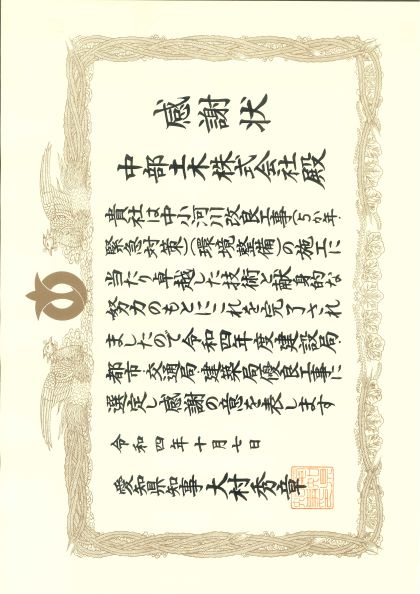 感謝状
中部土木株式会社殿
貴社は中小河川改良工事(5か年
緊急対策)(環境整備)の施工に
当たり卓越した技術と献身的な
努力のもとにこれを完了され
ましたので令和四年度建設局・
都市・交通局・建築局優良工事に
選定し感謝の意を表します
令和四年十月七日
愛知県知事 大村秀章